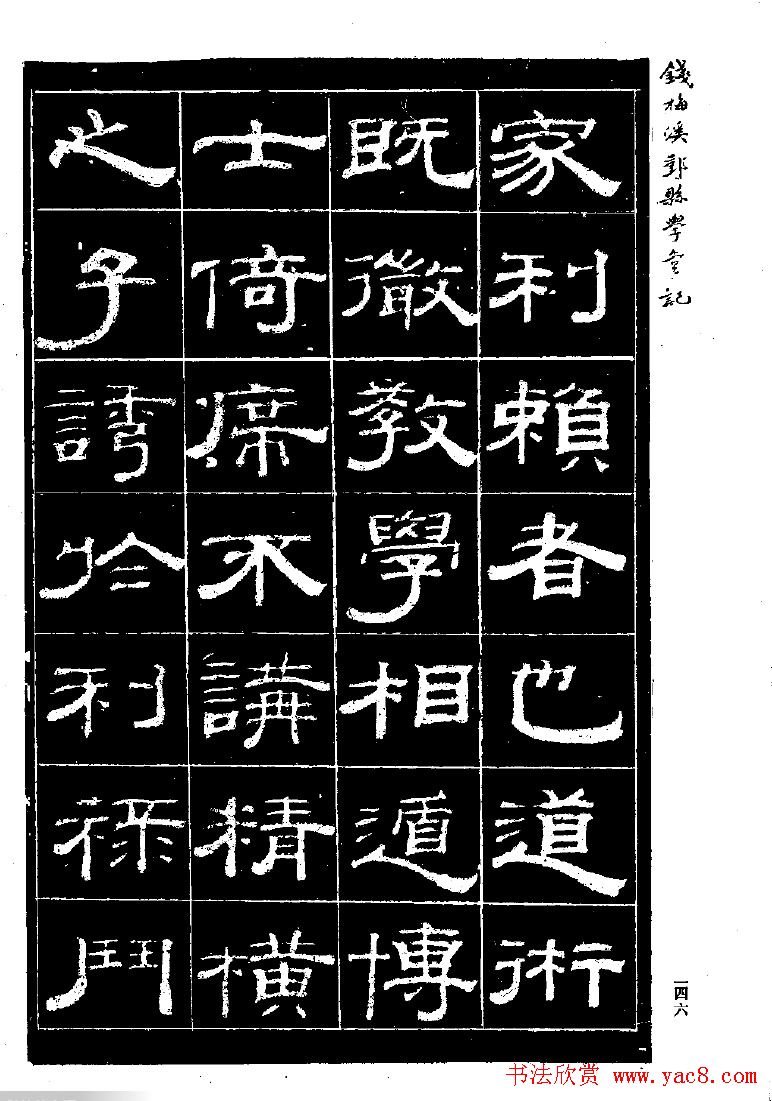 錢梅溪鄞縣學記
家利賴者也道術
既微教學相遁博
士倚席不講精橫
之子誘於利祿鬥
一四六
书法欣赏 www.yac8.com